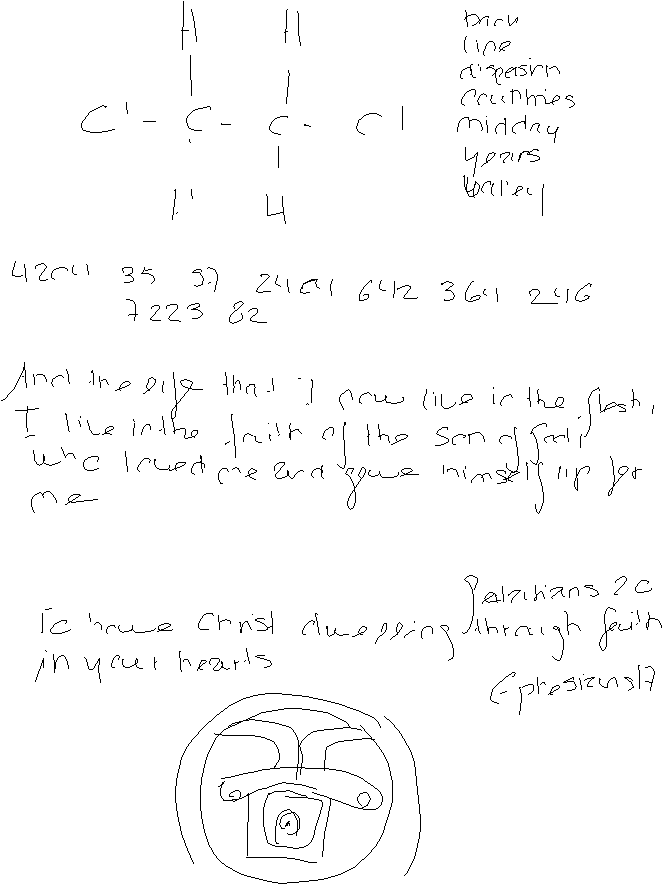 H H
Cl - C - C - Cl
H H
back
line
disposing
countries
midday
years
valley
4204 35 57 2404 642 364 246
7223 82
And the life that I now live in the flesh,
I live in the faith of the Son of God,
who loved me and gave himself up for
me
Galatians 2 20
To have Christ dwelling through faith
in your hearts
Ephesians 17